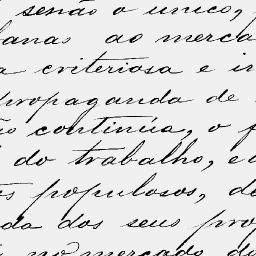 senão o unico,
ao merca
a criteriosa e in
propaganda de
ão continúa, o f
do trabalho, e
populosos, de
da dos seus prop
no mercado